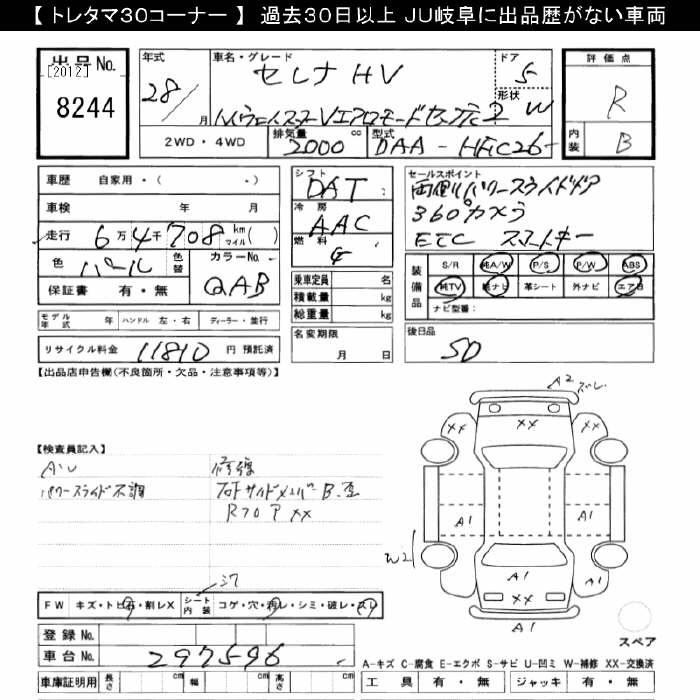 【 トレタマ30コーナー 】 過去30日以上 JU岐阜に出品歴がない車両
出品No.
[2012]
8244
年式
28/
月
車名・グレード
セレナ HV
ドア
5
形状
W
2WD・4WD
排気量
2000
cc
型式
DAA - HFC26-
評価点
R
内装
B
車歴 自家用・( -)
車検 年 月
走行 6万4千708 km マイル( )
色 パール 色替
カラーNo.
QAB
保証書 有・無
シフト
DAT
冷房
AAC
燃料
G
乗車定員 名
積載量 kg
総重量 kg
セールスポイント
両側パワースライドドア
360°カメラ
ETC スマートキー
装備品
S/R 純A/W P/S P/W ABS
純TV 純ナビ 革シート 外ナビ エアB
ナビ型番:
モデル年式 年 ハンドル 左・右 ディーラー・並行
リサイクル料金 11810 円 預託済
名変期限
月 日
後日品
SD
【出品店申告欄(不良箇所・欠品・注意事項等)】
【検査員記入】
パワースライド不調
修復
右Fサイドメンバー B.歪
RフロアP XX
A2 ズレ
XX
XX
XX
A1
A1
W2
A1
XX
A1
スペア
FW キズ・トビ石・割レX シート内装 コゲ・穴・汚レ・シミ・破レ・スレ
登録No.
車台No. 297596
車庫証明用 長さ cm 幅 cm 高さ cm
A-キズ C-腐食 E-エクボ S-サビ U-凹ミ W-補修 XX-交換済
工具 有・無 ジャッキ 有・無